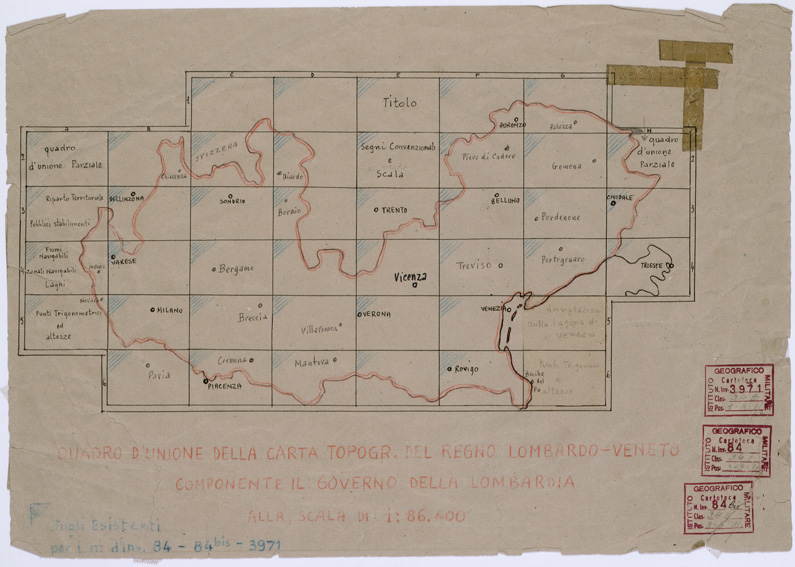 C D E F G
1
Titolo
A B H
2
quadro
d'unione Parziale
Chiavenna
SVIZZERA
Tirardo
Segni Convenzionali
e
Scala
Pieve di Cadore
AURONZO
Paluzza
Gemona
quadro
d'unione
Parziale
2
3
Riparto Territoriale
Pubblici Stabilimenti
BELLINZONA
SONDRIO
Bormio
TRENTO
BELLUNO
Pordenone
CIVIDALE
3
4
Fiumi
Navigabili
Canali Navigabili
Laghi
VARESE
Bergamo
Vicenza
Treviso
Portogruaro
TRIESTE
4
5
Punti Trigonometrici
ed
altezze
MILANO
Brescia
Villafranca
VERONA
VENEZIA
Annotazioni
sulla laguna di
Venezia
5
6
Pavia
PIACENZA
Cremona
Mantova
Rovigo
Punti Trigonom
e
altezze
6
QUADRO D'UNIONE DELLA CARTA TOPOGR. DEL REGNO LOMBARDO-VENETO
COMPONENTE IL GOVERNO DELLA LOMBARDIA
ALLA SCALA DI 1:86.400
Fogli Esistenti
per i n. d'inv. 84 - 84bis - 3971
ISTITUTO
GEOGRAFICO
MILITARE
Cartoteca
N. Inv. 3971
Clas.
Pos.
ISTITUTO
GEOGRAFICO
MILITARE
Cartoteca
N. Inv. 84
Clas.
Pos.
ISTITUTO
GEOGRAFICO
MILITARE
Cartoteca
N. Inv. 84 bis
Clas.
Pos.